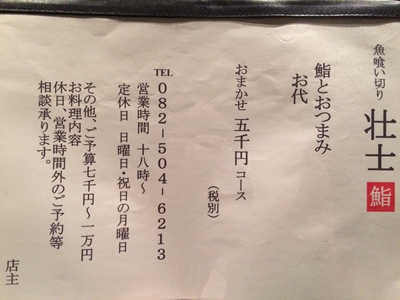 魚喰い切り
壮士 鮨
鮨とおつまみ
お代
おまかせ 五千円 コース
(税別)
TEL 082-504-6213
営業時間 十八時～
定休日 日曜日・祝日の月曜日
その他、ご予算七千円～一万円
お料理内容
休日、営業時間外のご予約等
相談承ります。
店主